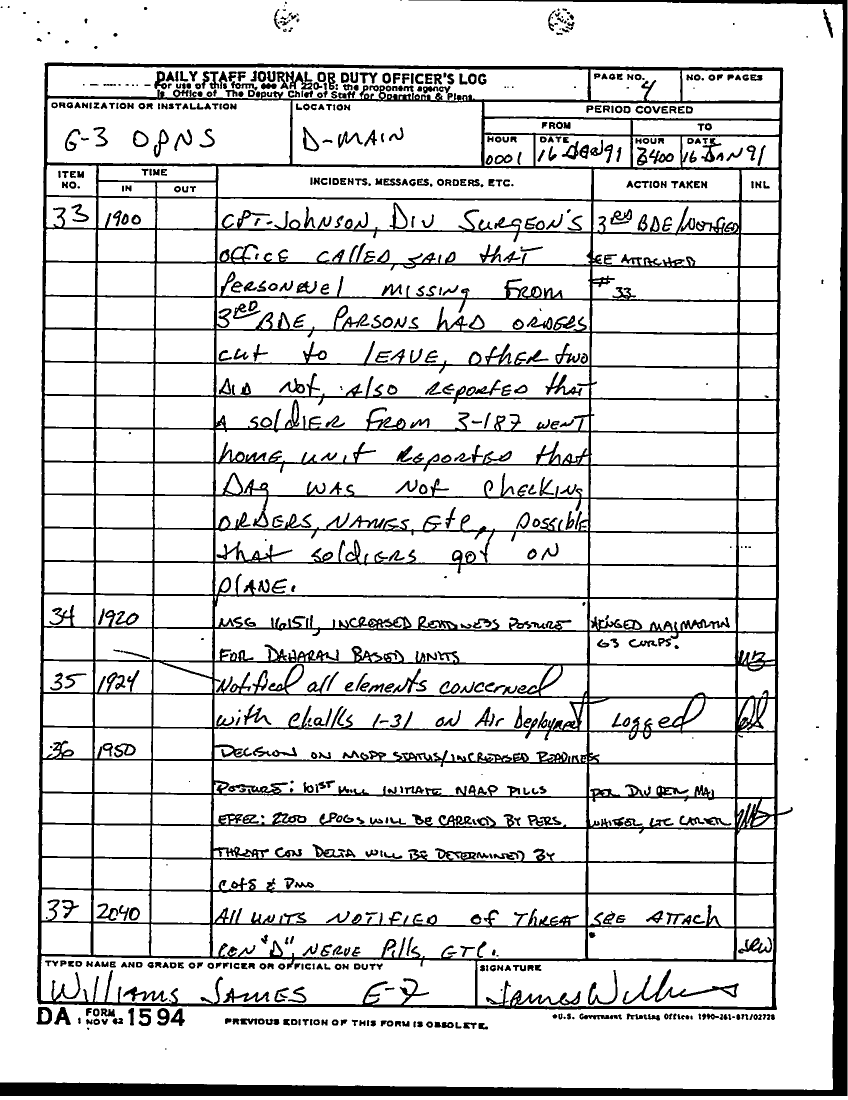 DAILY STAFF JOURNAL OR DUTY OFFICER'S LOG
For use of this form, see AR 220-15; the proponent agency
is Office of The Deputy Chief of Staff for Operations & Plans.
PAGE NO.
4
NO. OF PAGES
ORGANIZATION OR INSTALLATION
G-3 OPNS
LOCATION
D-MAIN
PERIOD COVERED
FROM
TO
HOUR
0001
DATE
16 JAN 91
HOUR
2400
DATE
16 JAN 91
ITEM NO.
TIME
IN
OUT
INCIDENTS, MESSAGES, ORDERS, ETC.
ACTION TAKEN
INL
33 1900 CPT-Johnson, DIV SURGEON'S 3RD BDE/NOTIFIED
OFFICE CALLED, SAID that SEE ATTACHED
PERSONNEL MISSING FROM # 33
3RD BDE, PARSONS HAD ORDERS
cut to LEAVE, other two
DID Not, Also REPORTED that
A SOLDIER FROM 3-187 WENT
home, unit REPORTED that
DAG WAS NOT CHECKING
ORDERS, NAMES, Etc., possible
that SOLDIERS got ON
PLANE.
34 1920 MSG 161511, INCREASED READINESS POSTURE MAJ MARTIN
FOR DAHARAN BASED UNITS G3 CORPS.
35 1924 Notified all elements concerned
with chalks 1-31 on Air deployment Logged
36 1950 DECISION ON MOPP STATUS/INCREASED READINESS
POSTURE: 101ST WILL INITIATE NAAP PILLS PER DIV MAJ
EFFEC: 2200 CPOGS WILL BE CARRIED BY PERS. LTC
THREAT CON DELTA WILL BE DETERMINED BY
COFS & PMO
37 2040 All UNITS NOTIFIED OF THREAT SEE ATTACH
CON "D", NERVE Pills, ETC. JRW
TYPED NAME AND GRADE OF OFFICER OR OFFICIAL ON DUTY
Williams JAMES E-7
SIGNATURE
James Williams
DA FORM 1 NOV 62 1594
PREVIOUS EDITION OF THIS FORM IS OBSOLETE.
*U.S. Government Printing Office: 1990-261-871/02728